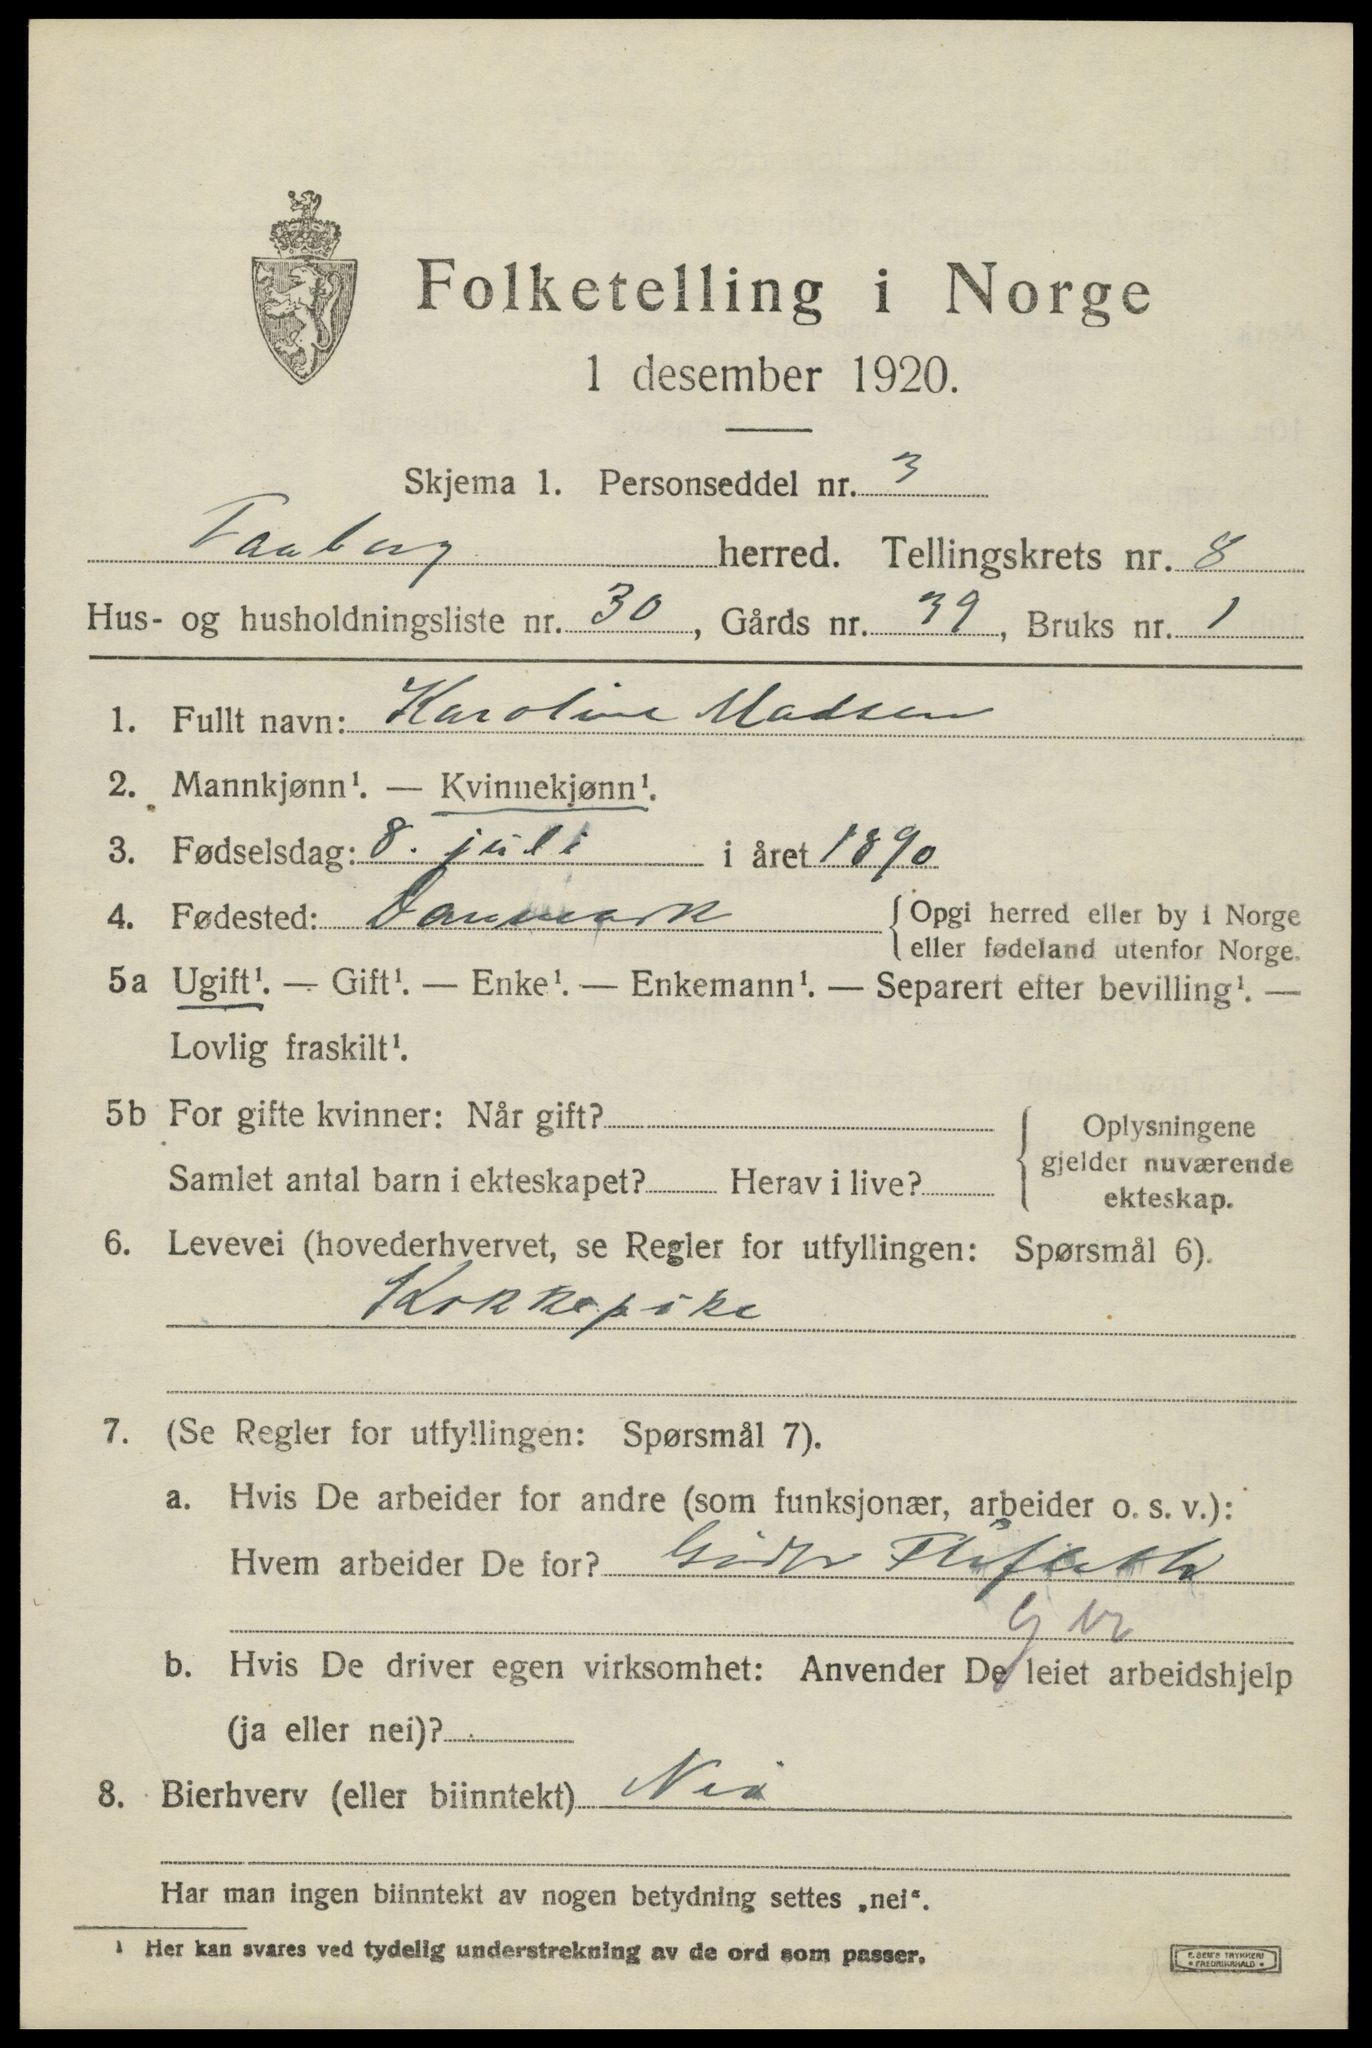 Folketelling i Norge
1 desember 1920.
Skjema 1. Personseddel nr. 3
Faaberg herred. Tellingskrets nr. 8
Hus- og husholdningsliste nr. 30, Gårds nr. 39, Bruks nr. 1
1. Fullt navn: Karoline Madsen
2. Mannkjønn¹. — Kvinnekjønn¹.
3. Fødselsdag: 8. juli i året 1890
4. Fødested: Danmark {Opgi herred eller by i Norge
eller fødeland utenfor Norge.
5a Ugift¹. — Gift¹. — Enke¹. — Enkemann¹. — Separert efter bevilling¹. —
Lovlig fraskilt¹.
5b For gifte kvinner: Når gift?
Samlet antal barn i ekteskapet? Herav i live?
Oplysningene
gjelder nuværende
ekteskap.
6. Levevei (hovederhvervet, se Regler for utfyllingen: Spørsmål 6).
Kokkepike
7. (Se Regler for utfyllingen: Spørsmål 7).
a. Hvis De arbeider for andre (som funksjonær, arbeider o. s. v.):
Hvem arbeider De for?
b. Hvis De driver egen virksomhet: Anvender De leiet arbeidshjelp
(ja eller nei)?
8. Bierhverv (eller biinntekt) Nei
Har man ingen biinntekt av nogen betydning settes „nei“.
¹ Her kan svares ved tydelig understrekning av de ord som passer.
E. SEM'S TRYKKERI
• FREDRIKSHALD •